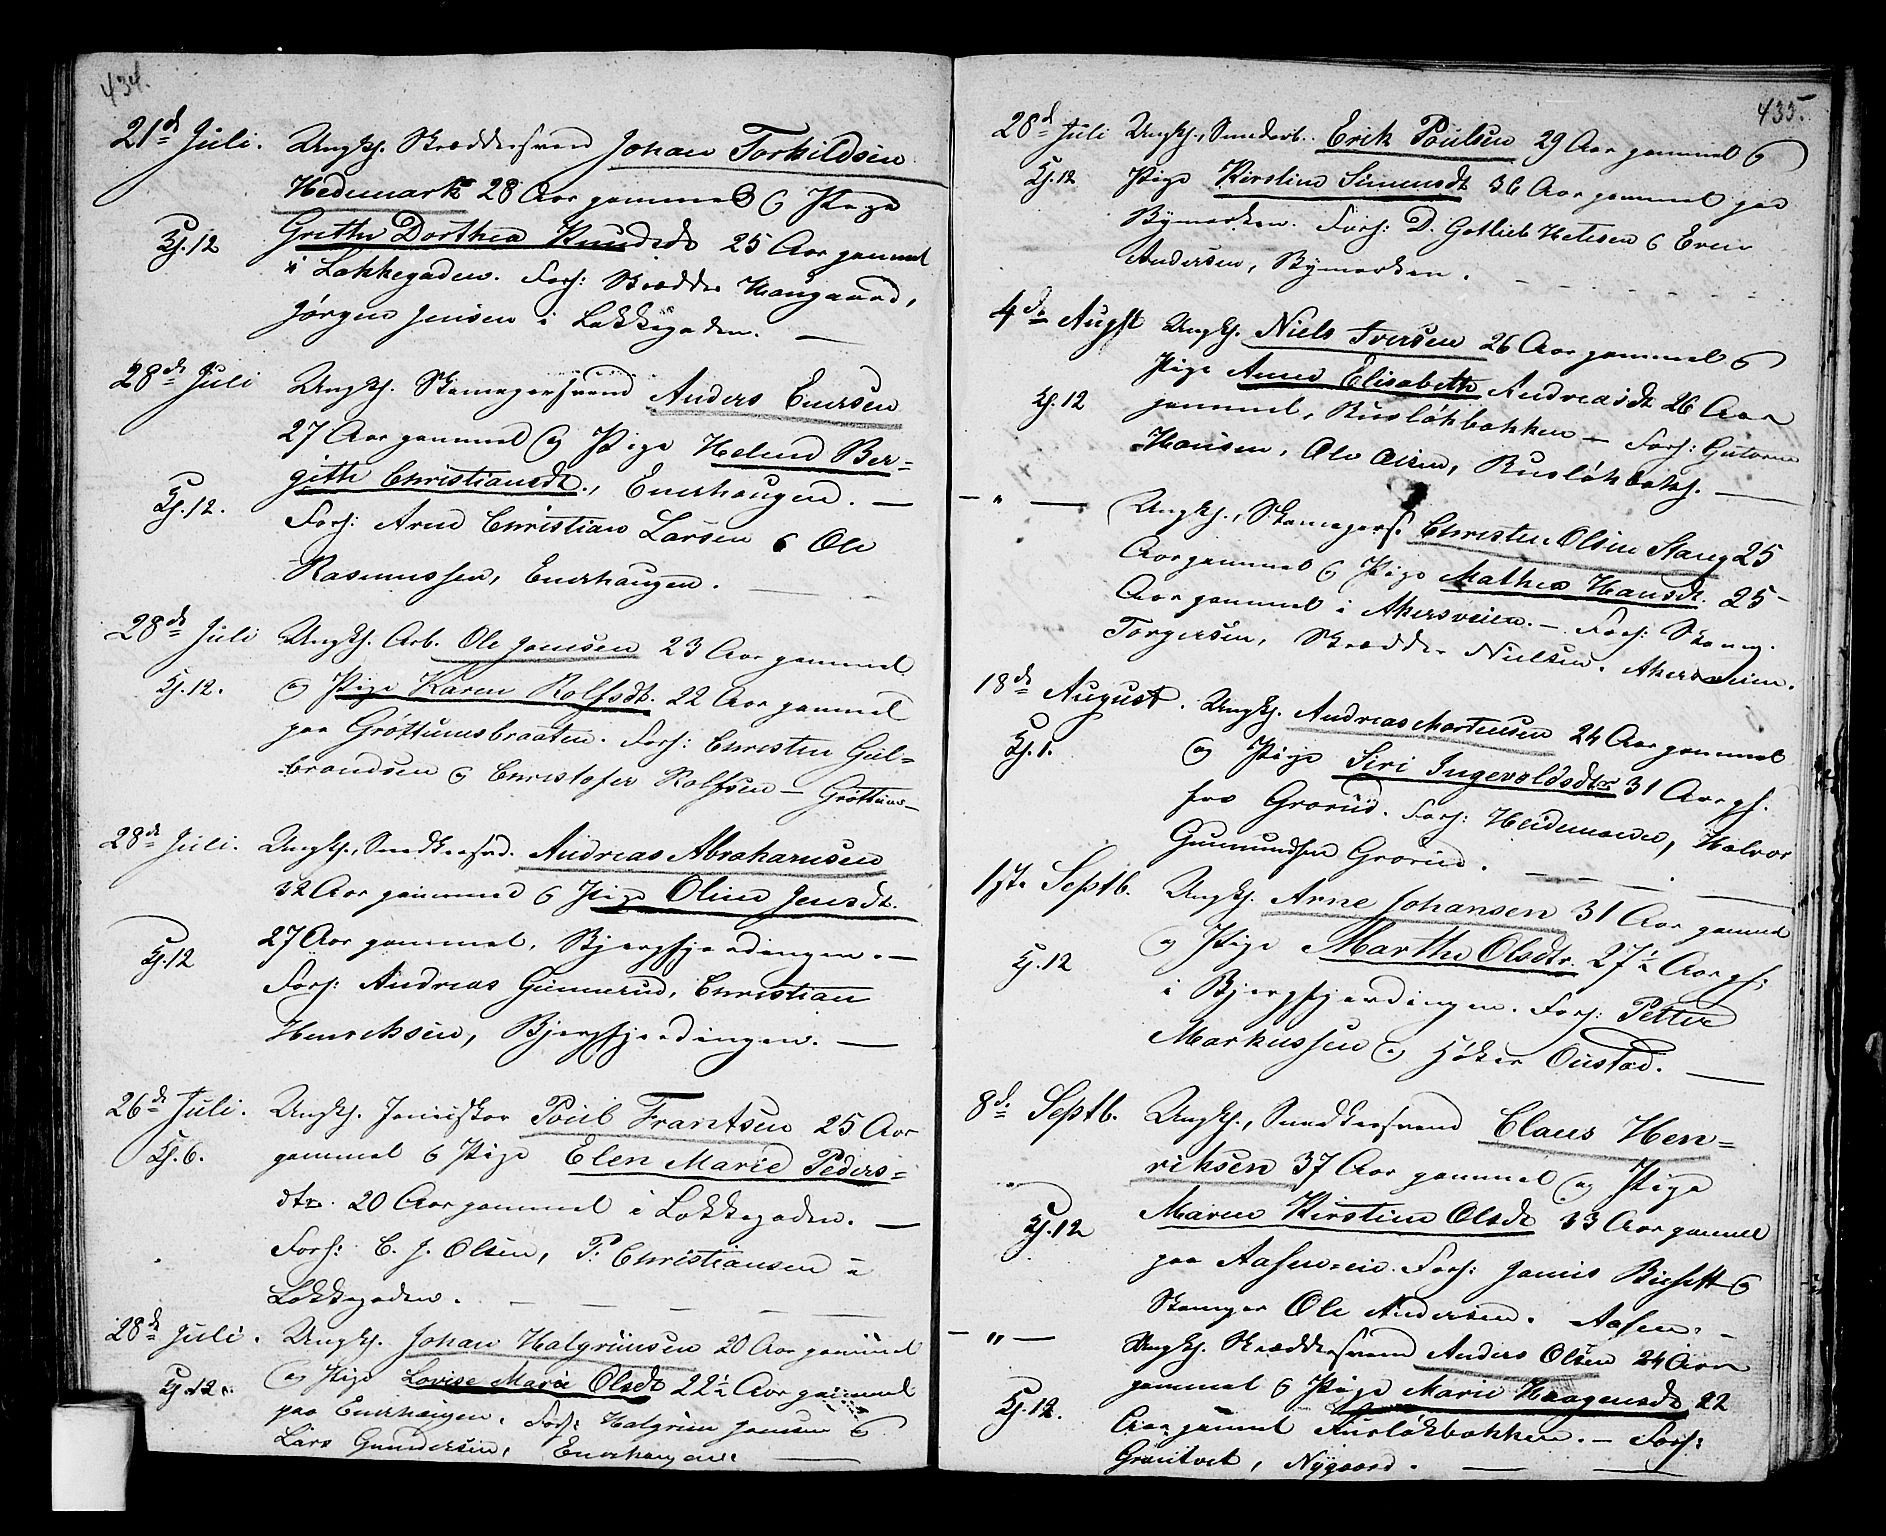 434.
21d Juli. Ungk. Skræddersvend Johan Torkildsen
Hedemark 28 Aar gammel & Pige
Kl. 12 Grethe Dorthea Knudsdt 25 Aar gammel
i Lakkegaden. Forl: Skrædder Haugaard,
Jørgen Jensen i Lakkegaden. —
28de Juli Ungk. Skomagersvend Anders Enersen
27 Aar gammel og Pige Helene Ber=
Kl. 12. githe Christiansdt., Enerhaugen. —
Forl: Arne Christian Larsen & Ole
Rasmussen, Enerhaugen. —
28de Juli Ungk. Arb. Ole Jansen 23 Aar gammel
Kl. 12. og Pige Karen Rolfsdt. 22 Aar gammel
paa Grøttumsbraaten. Forl: Christen Gul=
brandsen & Christofer Rolfsen —
28de Juli. Ungk., Snedkersvd. Andreas Abrahamsen
32 Aar gammel & Pige Oline Jensdt.
Kl. 12 27 Aar gammel, Bjergfjerdingen. —
Forl: Andreas Gunnerud, Christian
Henriksen, Bjergfjerdingen. —
26de Juli. Ungk. Poul Frantsen 25 Aar
Kl. 6. gammel & Pige Elen Marie Peders=
dtr. 20 Aar gammel i Lakkegaden. —
Forl: C. J. Olsen, P. Christiansen i
Lakkegaden. —
28de Juli. Ungk. Johan Halgrimsen 20 Aar gammel
Kl. 12. og Pige Lovise Marie Olsdt 22½ Aar gammel
paa Enerhaugen. Forl: Halgrim Jansen &
Lars Gundersen, Enerhaugen. —
435.
28d Juli Ungk., Erik Poulsen 29 Aar gammel &
Kl. 12 Pige Kirstine Simensdt 36 Aar gammel paa
Bymarken. Forl: D. Gotlieb & Even
Andersen, Bymarken.
4de Augst Ungk. Niels Iversen 26 Aar gammel &
Pige Anne Elisabeth Andreasdt 26 Aar
Kl. 12 gammel, Rusløkbakken — Forl: Gutorm
Hansen, Ole Olsen, Rusløkbakk. —
— " — Ungk., Skomagers. Christen Olsen Stang 25
Aar gammel & Pige Mathea Hansdt. 25
Aar gammel i Akersveien. — Forl: Skomg.
Torgersen, Skrædder Nielsen. Akersveien.
18de August. Ungk. Andreas Mortensen 24 Aar gammel
Kl. 1. og Pige Siri Ingevoldsdtr 31 Aar gl.
fra Grorud. Forl: Halvor
Gunmundsen Grorud.
1ste Septb. Ungk. Arne Johansen 31 Aar gammel
Kl. 12 og Pige Marthe Olsdtr. 27½ Aar gl.
i Bjergfjerdingen. Forl: Petter
Markussen og Høker Oustad. —
8d. Septb. Ungk., Snedkersvend Claus Hen=
riksen 37 Aar gammel og Pige
Kl. 12 Maren Kirstine Olsdt 33 Aar gammel
paa Aasenveie. Forl: &
Skomager Ole Andersen. Aasen. —
— " — Ungk. Skræddersvend Anders Olsen 24 Aar
Kl. 12. gammel & Pige Marie Haagensdt 22
Aar gammel Rusløkbakken. — Forl:
Nygaard. —